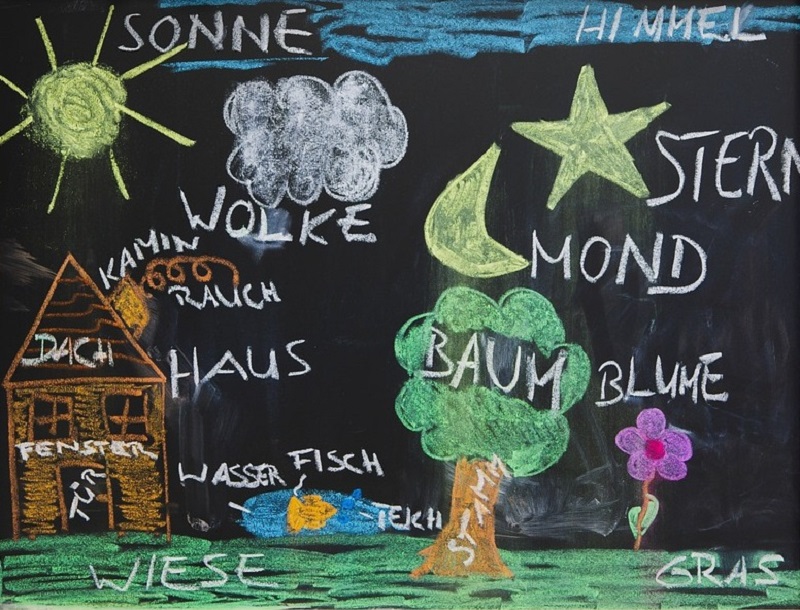 SONNE
HIMMEL
STERN
WOLKE
KAMIN
MOND
RAUCH
DACH
HAUS
BAUM
BLUME
FENSTER
WASSER
FISCH
TÜR
TEICH
STAMM
WIESE
GRAS